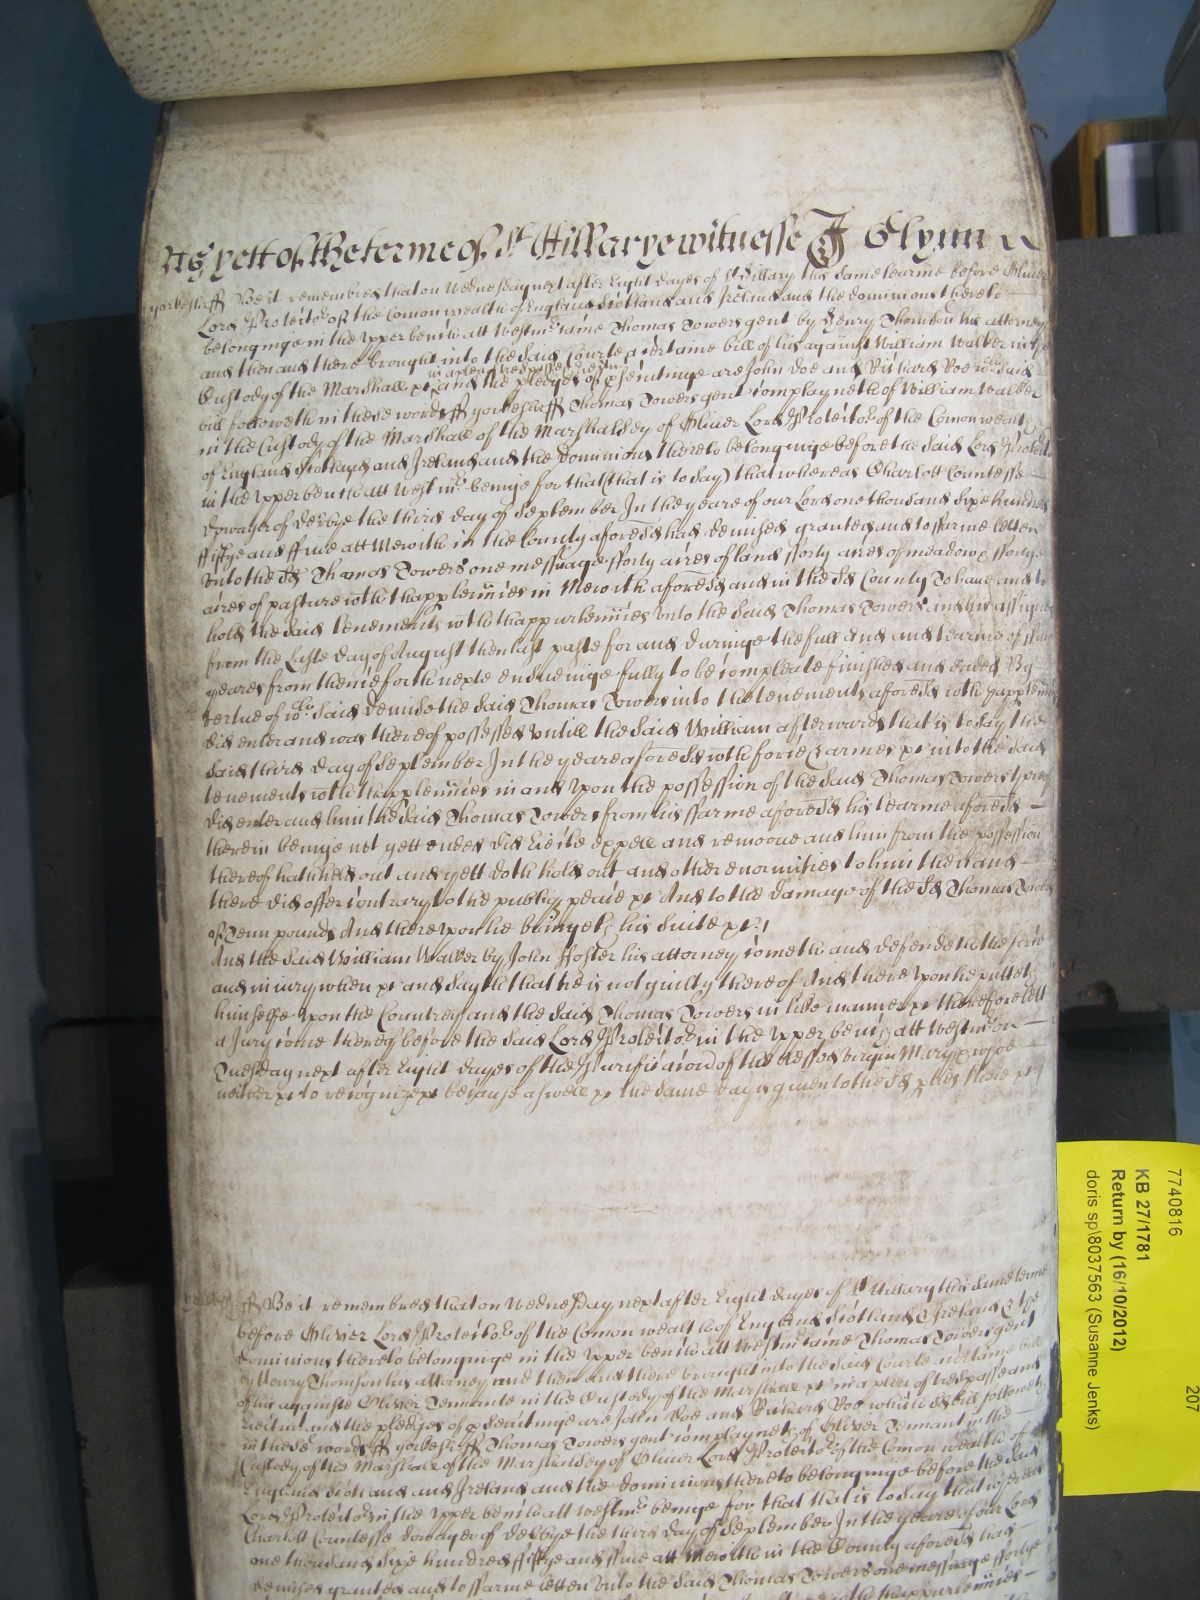 As yett of the terme of St Hillarye witnesse J Glynn R
yorkesh ff Be it remembred that on Wednesday next after Eight dayes of St Hillary this same tearme before Oliver
Lord Protector of the Comon wealth of England Scotland and Ireland and the dominions thereto
belonginge in the upper bench att Westmr came Thomas Towers gent by Henry Thomson his attorney
and then and there brought into the said Courte a certaine bill of his against William Walker in the
Custody of the Marshall &c in a plea of trespasse and Eiectmt and the pledges of pseintinge are John Doe and Richard Roe wch said
bill followeth in these words ff yorkesh ff Thomas Towers gent complayneth of William Walker
in the Custody of the Marshall of the Marshalsey of Oliver Lord Protector of the Comonwealth
of England Scotland and Ireland and the dominions thereto belonginge before the said Lord Protector
in the upper bench att Westmr beinge for that (that is to say) that whereas Charlott Countesse
dowager of derbye the third day of September In the yeare of our Lord one thousand sixe hundred
fiftye and ffive att Mewith in the County aforesd had demised granted and to ffarme letten
unto the sd Thomas Towers one messuage fforty acres of land fforty acres of meadow & fforty
acres of pasture wth thapptennces in Mewith aforesd and in the sd County To have and to
hold the said tenements wth thappurtennces unto the said Thomas Towers and his assignes
from the Laste day of August then last paste for and duringe the full end and tearme of
yeares from thence forth nexte ensueinge fully to be compleate finished and ended By
vertue of wch said demise the said Thomas Towers into the tenements aforesd wth thapptennces
did enter and was thereof possessed untill the said William afterwards that is to say the
said third day of September In the yeare aforesd wth force & armes &c into the said
tenements wth thapptennces in and upon the possession of the said Thomas Towers thereof
did enter and him the said Thomas Towers from his ffarme aforesd his tearme aforesd
therein beinge not yett ended did Eiecte expell and remooue and him from the possession
thereof hath held out and yett doth hold out and other enormities to him then and
there did offer contrary to the publiq peace &c And to the damage of the sd Thomas Towers
of Tenn pounds And thereupon he bringeth his suite &c
And the said William Walker by John Foster his attorney cometh and defendeth the force
and iniury when &c and sayth that he is not guilty thereof And thereupon he putteth
himselfe upon the Countrey and the said Thomas Towers in like manner &c therefore lett
a Jury come thereof before the said Lord Protector in the upper bench att Westmr on
Tuesday next after Eight dayes of the Purificacion of the blessed virgin Mary & whoe
neither &c to recognize &c because aswell &c the same day is given to the sd pties there &c
ff Be it remembred that on Wednesday next after Eight dayes of St Hillary this same terme
before Oliver Lord Protector of the Comon wealth of England Scotland & Ireland & the
dominions thereto belonginge in the upper bench att Westmr came Thomas Towers gent
by Henry Thomson his attorney and then and there brought into the said Courte a certaine bill
of his againste Oliver Tennante in the Custody of the Marshall &c in a plea of trespasse and
Eiectmt and the pledges of pseintinge are John Doe and Richard Roe which sd bill followeth
in these words ff yorkesh ff Thomas Towers gent complayneth of Oliver Tennant in the
Custody of the Marshall of the Marshalsey of Oliver Lord Protector of the Comon wealth of
England Scotland and Ireland and the dominions thereto belonginge before the said
Lord Protector in the upper bench att Westmr beinge for that that is to say that whereas
Charlott Countesse dowager of derbye the third day of September In the yeare of our Lord
one thousand sixe hundred fiftye and ffive att Mewith in the County aforesd had
demised granted and to ffarme letten unto the said Thomas Towers one messuage ffortye
7740816
KB 27/1781
Return by (16/10/2012)
doris sp\8037563 (Susanne Jenks)
207